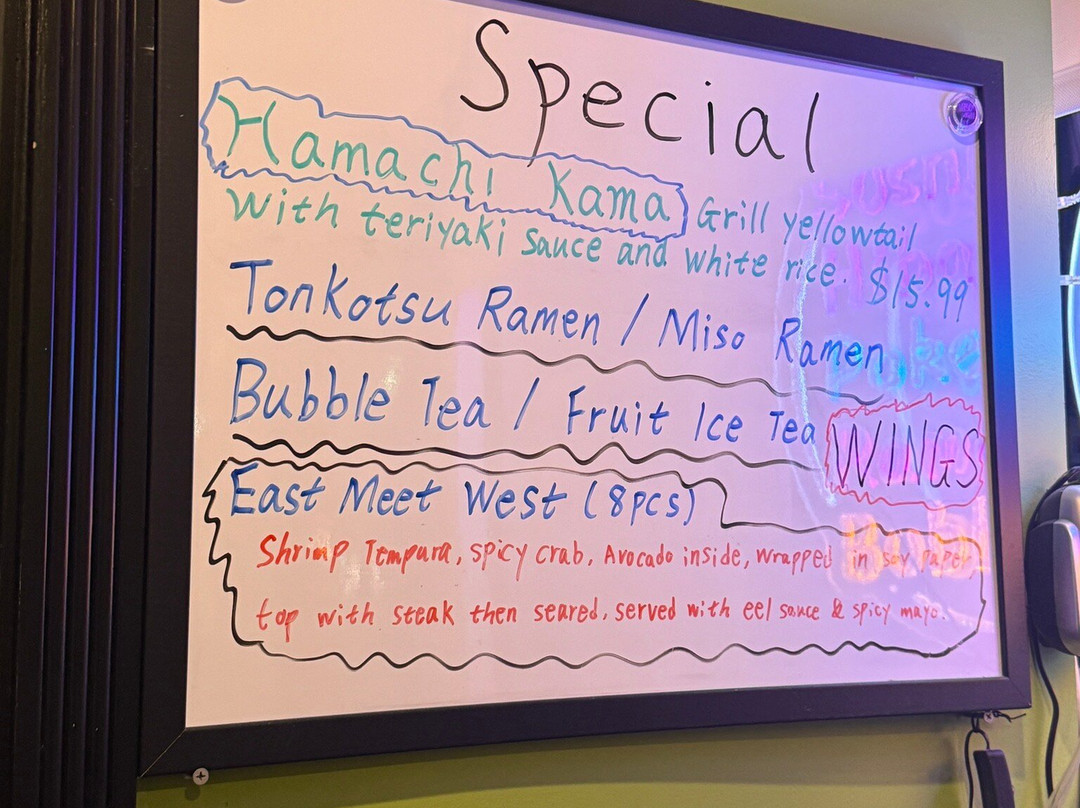 Special
Hamachi Kama Grill yellowtail
with teriyaki sauce and white rice. $15.99
Tonkotsu Ramen / Miso Ramen
Bubble Tea / Fruit Ice Tea WINGS
East Meet West (8pcs)
Shrimp Tempura, spicy crab, Avocado inside, wrapped in soy paper,
top with steak then seared, served with eel sauce & spicy mayo.